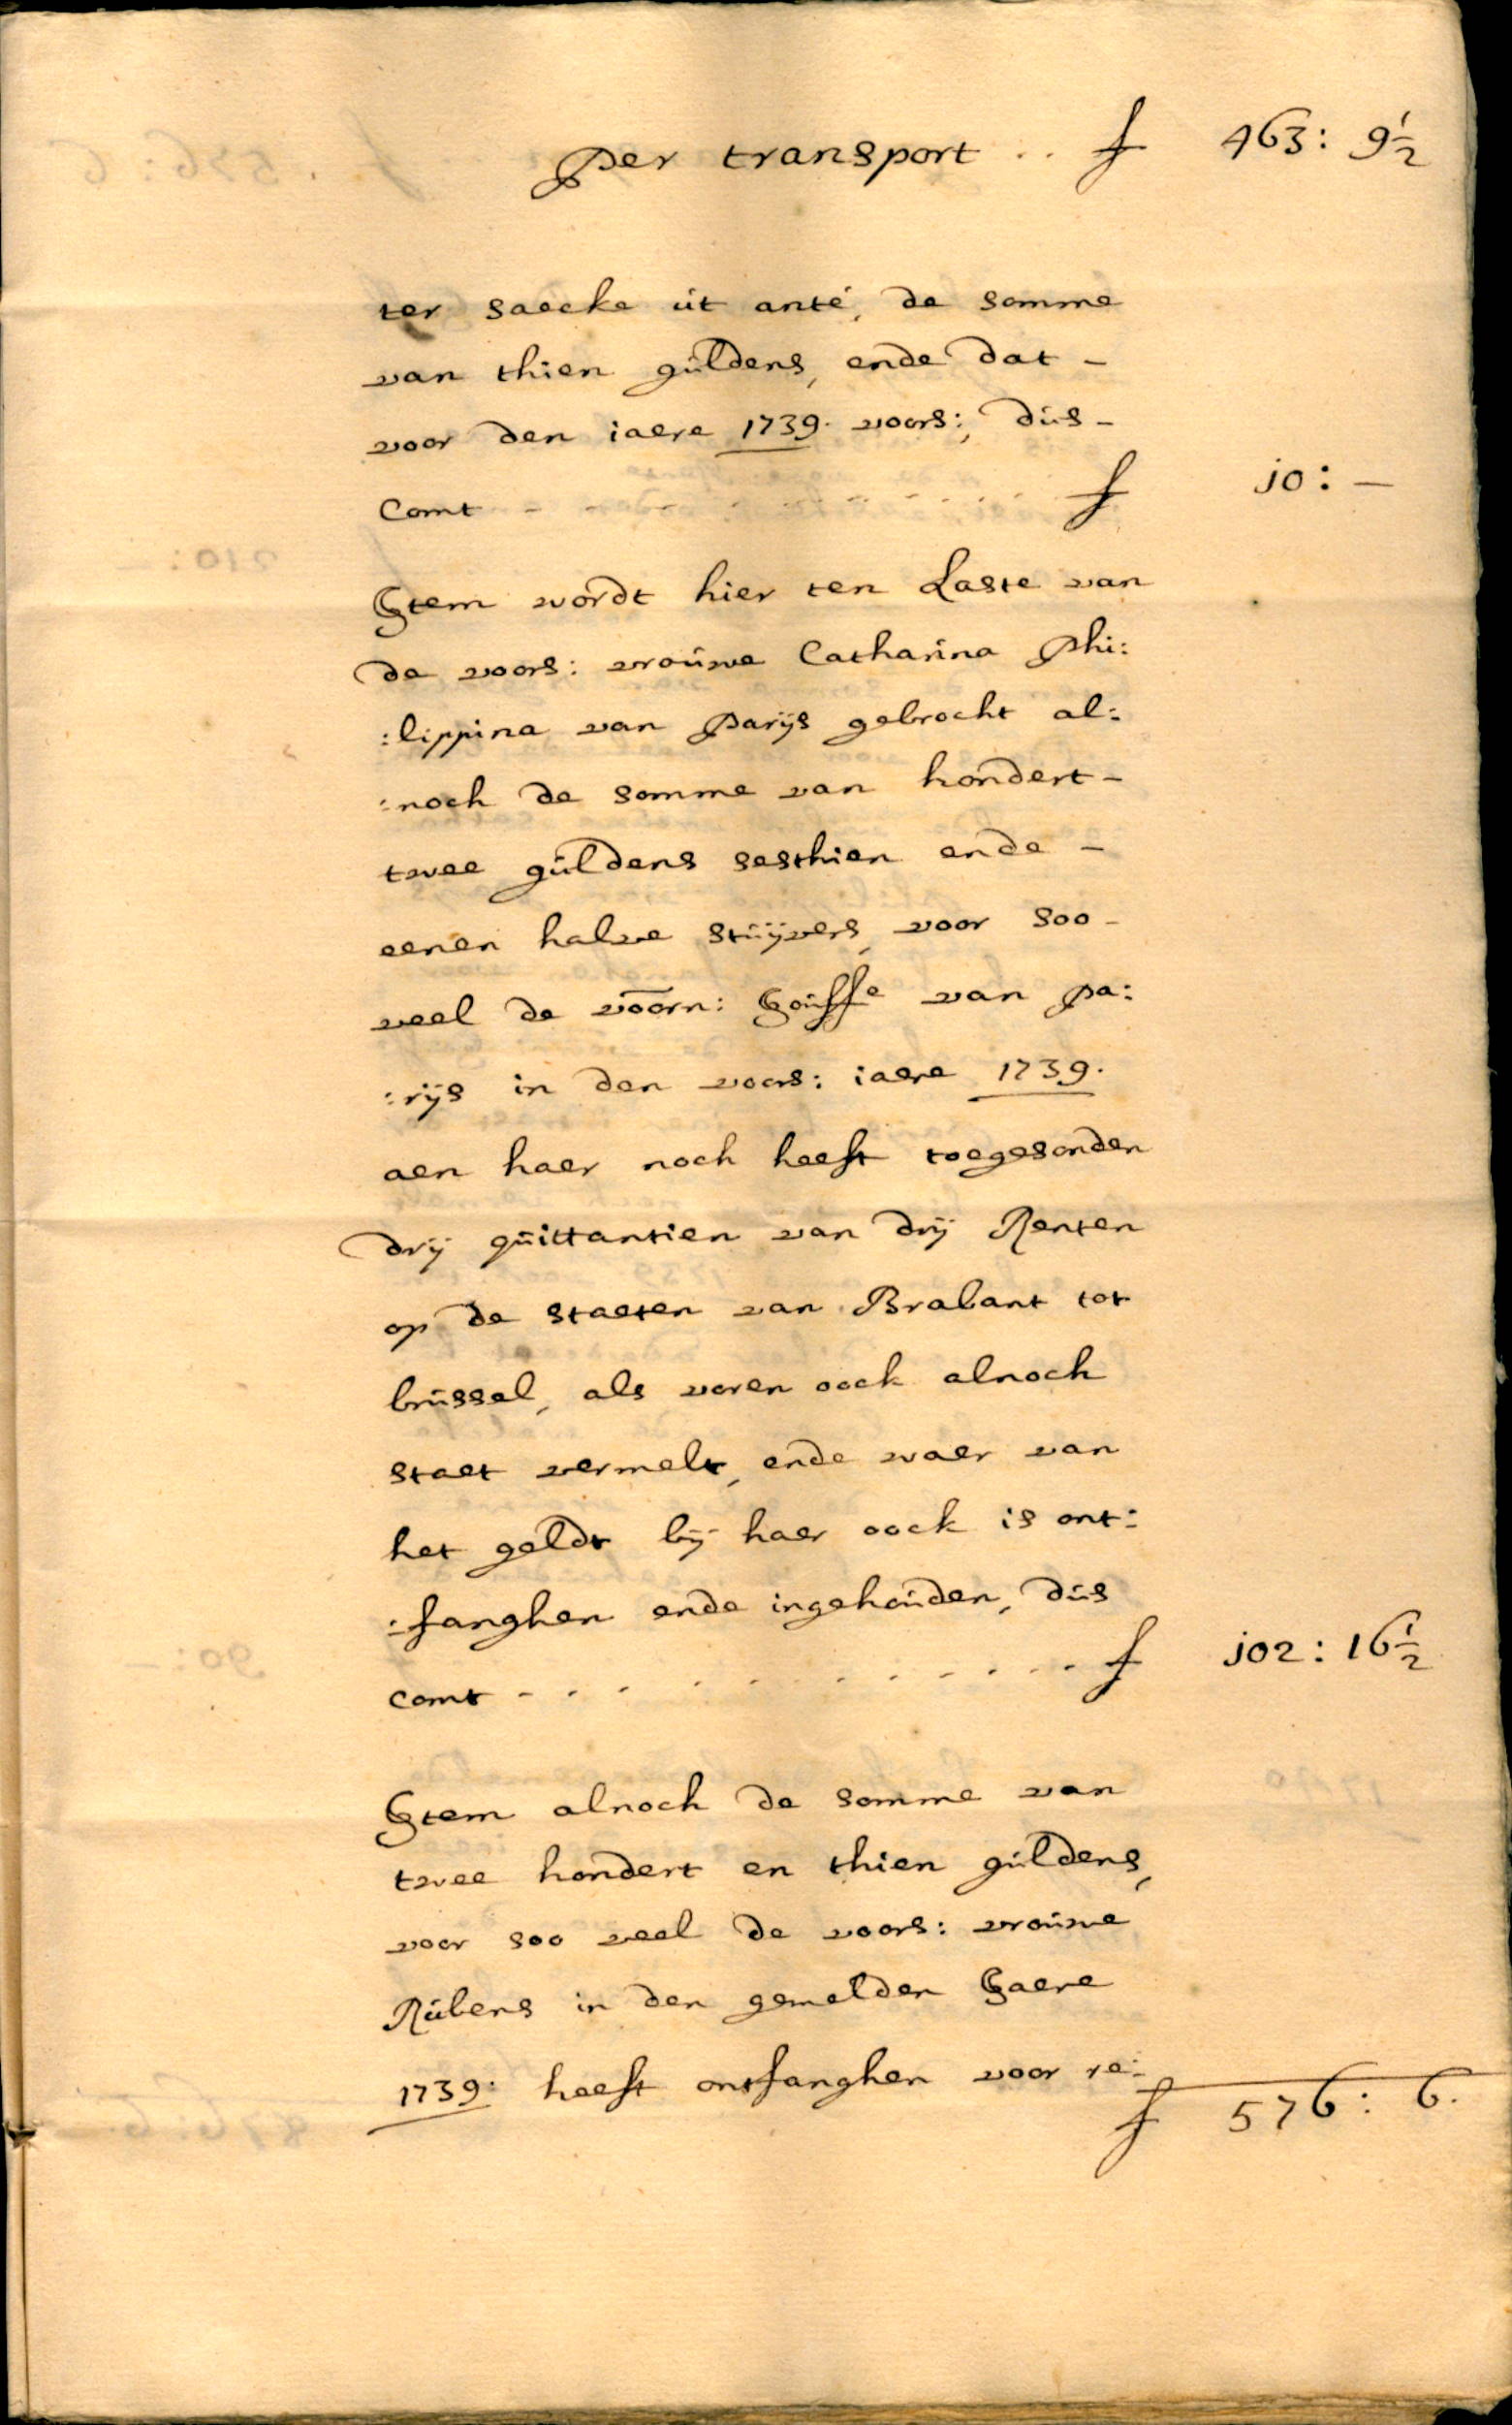 Per transport .. f 463: 9½
ter saecke út anté, de somme
van thien gúldens, ende dat -
voor den iaere 1739. voors:, dús -
Comt - - - . . . . . . . . f jo: —
Item wordt hier ten Laste van
de voors: vroúwe Catharina Phi:
:lippina van Parijs gebrocht al:
:noch de somme van hondert -
twee gúldens sesthien ende -
eenen halve stúijvers, voor soo -
veel de voorn: Joúffe van Pa:
:rijs in den voors: iaere 1739.
aen haer noch heeft toegesonden
drij qúittantien van drij Renten
op de staeten van Brabant tot
brússel, als voren oock alnoch
staet vermelt, ende waer van
het geldt bij haer oock is ont:
:fanghen ende ingehoúden, dús
comt - - - . . . . . . . . f j02: 16½
Item alnoch de somme van
twee hondert en thien gúldens,
voor soo veel de voors: vroúwe
Rúbens in den gemelden Jaere
1739. heeft ontfanghen voor re:
f 576: 6.